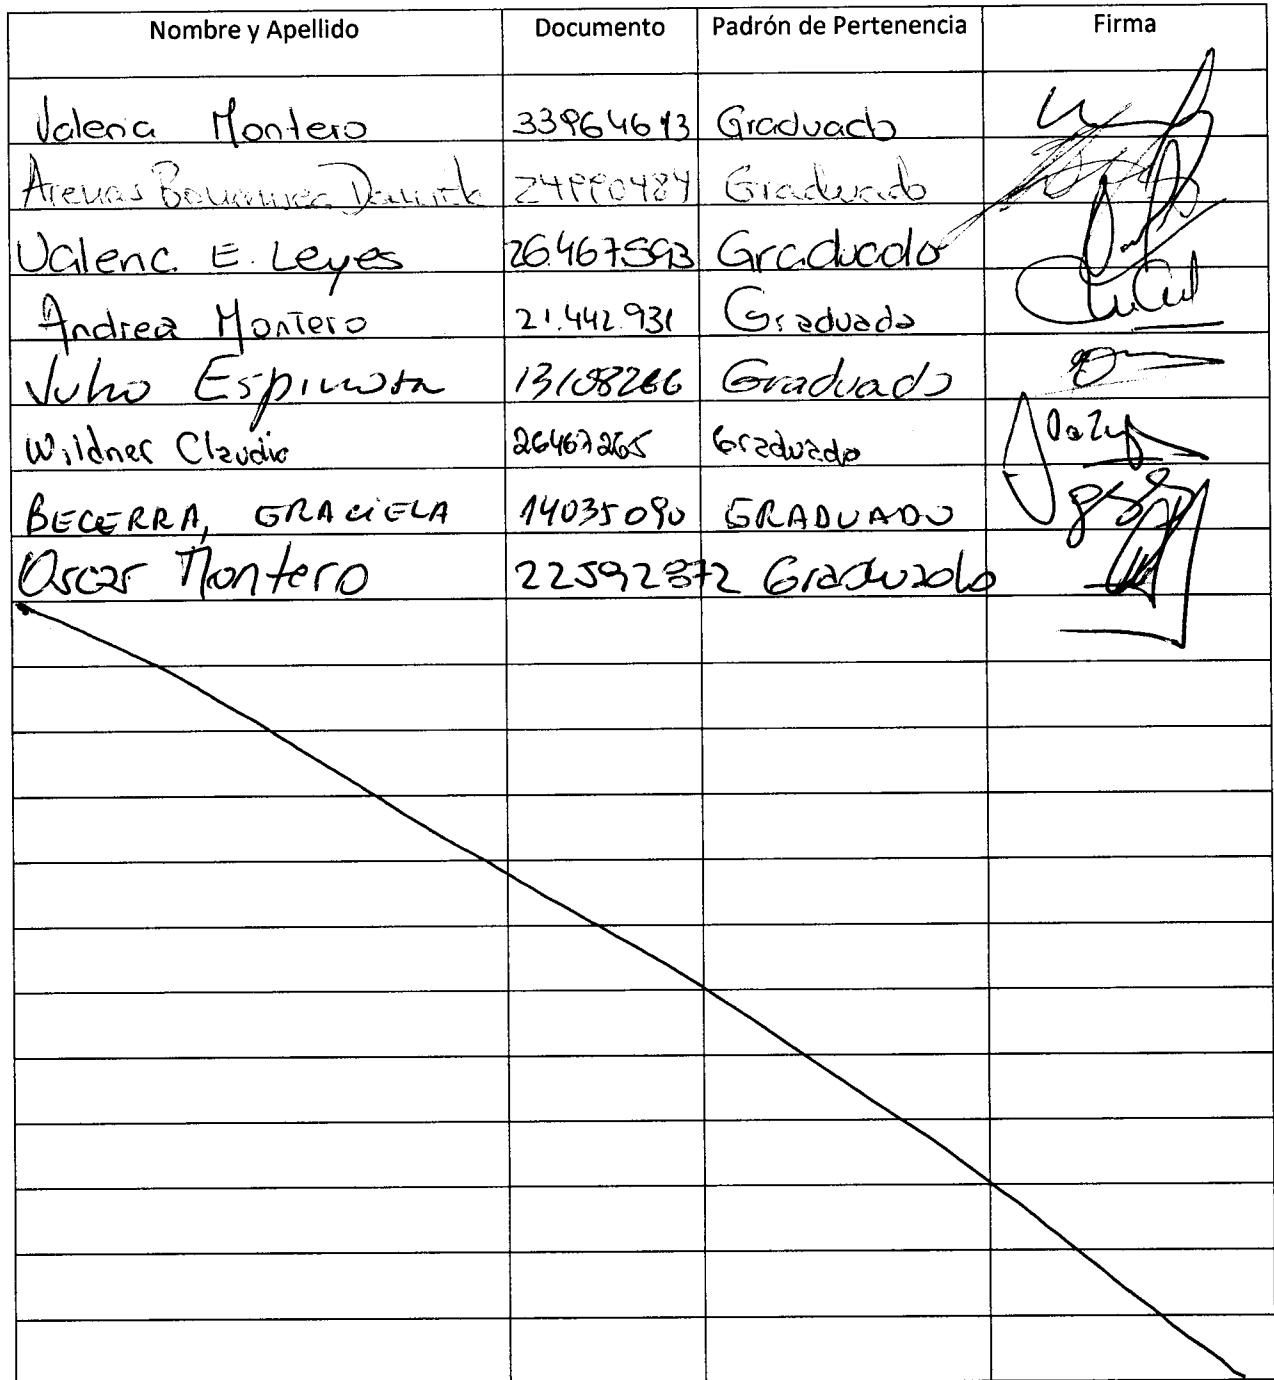 Nombre y Apellido Documento Padrón de Pertenencia Firma
Valeria Montero 33964613 Graduado
Arenas Graduado
Valeria E. Leyes 26.467.593 Graduado
Andrea Montero 21.442.931 Graduado
Julio Espinosa 13108266 Graduado
Wildner Claudio 26467265 Graduado
BECERRA, GRACIELA 14035090 GRADUADO
Oscar Montero 22592872 Graduado